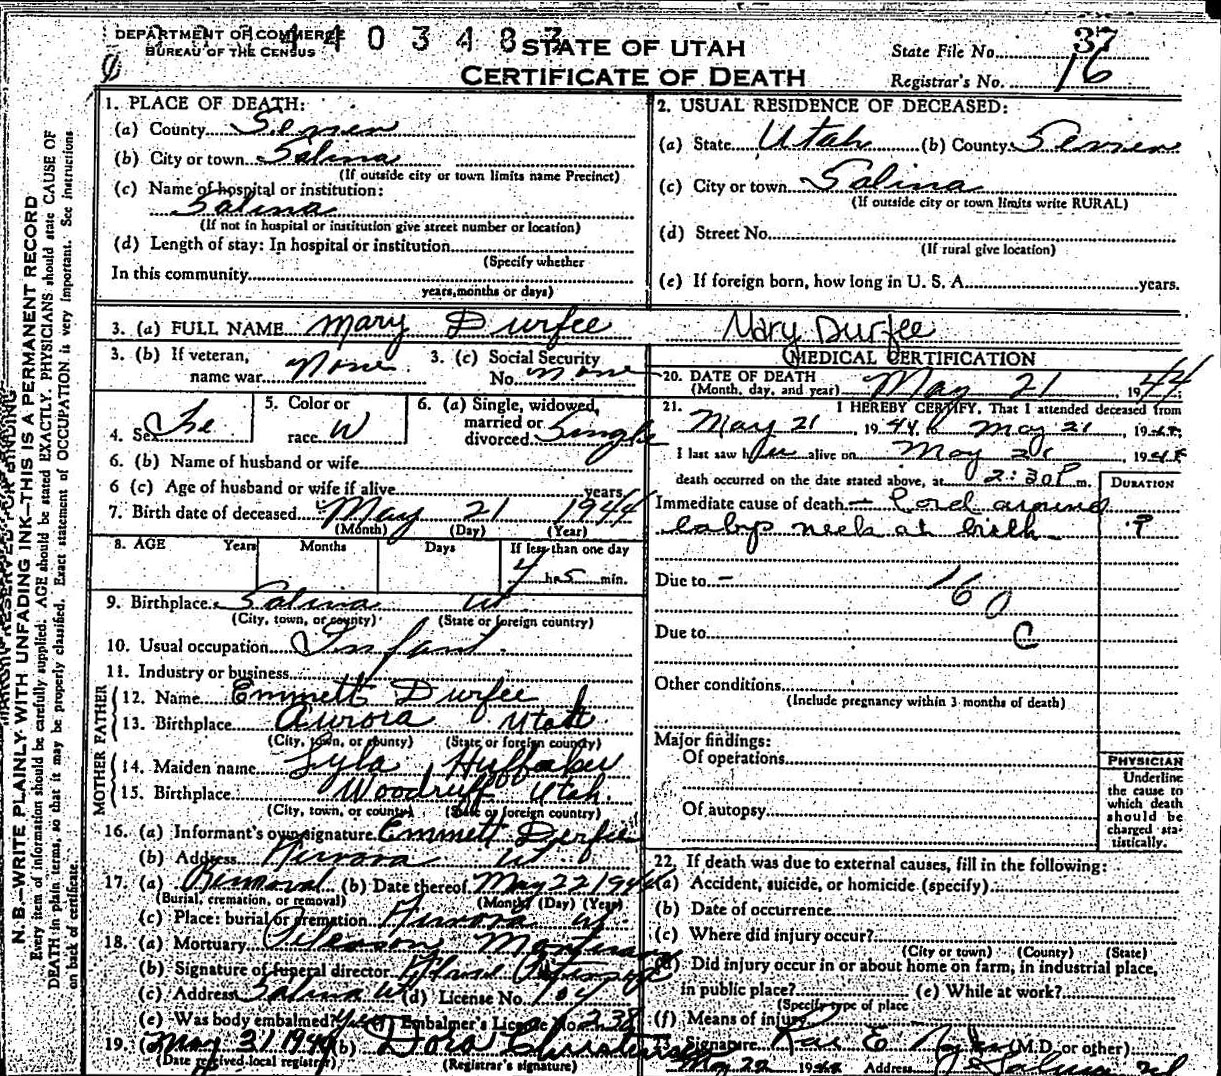 DEPARTMENT OF COMMERCE
BUREAU OF THE CENSUS
STATE OF UTAH
CERTIFICATE OF DEATH
State File No. 37
Registrar's No. 16
N. B.—WRITE PLAINLY WITH UNFADING INK—THIS IS A PERMANENT RECORD
Every item of information should be carefully supplied. AGE should be stated EXACTLY. PHYSICIANS should state CAUSE OF
DEATH in plain terms, so that it may be properly classified. Exact statement of OCCUPATION is very important. See instructions
on back of certificate.
1. PLACE OF DEATH:
(a) County Sevier
(b) City or town Salina
(If outside city or town limits name Precinct)
(c) Name of hospital or institution:
Salina
(If not in hospital or institution give street number or location)
(d) Length of stay: In hospital or institution
(Specify whether
In this community
years, months or days)
2. USUAL RESIDENCE OF DECEASED:
(a) State Utah (b) County Sevier
(c) City or town Salina
(If outside city or town limits write RURAL)
(d) Street No.
(If rural give location)
(e) If foreign born, how long in U. S. A. years.
3. (a) FULL NAME Mary Durfee Mary Durfee
3. (b) If veteran,
name war None
3. (c) Social Security
No. none
4. Sex Fe
5. Color or
race W
6. (a) Single, widowed,
married or
divorced Single
6. (b) Name of husband or wife
6 (c) Age of husband or wife if alive years
7. Birth date of deceased May 21 1944
(Month) (Day) (Year)
8. AGE Years Months Days If less than one day
4 hr 5 min.
9. Birthplace Salina Ut
(City, town, or county) (State or foreign country)
10. Usual occupation Infant
11. Industry or business
FATHER
12. Name Emmett Durfee
13. Birthplace Aurora Utah
(City, town, or county) (State or foreign country)
MOTHER
14. Maiden name Lyla Huffaker
15. Birthplace Woodruff Utah
(City, town, or county) (State or foreign country)
16. (a) Informant's own signature Emmett Durfee
(b) Address Aurora Ut
17. (a) Removal (b) Date thereof May 22 1944
(Burial, cremation, or removal) (Month) (Day) (Year)
(c) Place: burial or cremation Aurora Ut
18. (a) Mortuary
(b) Signature of funeral director
(c) Address Salina Ut (d) License No. 104
(e) Was body embalmed? Yes (f) Embalmer's License No. 238
19. (a) May 21 1944 (b) Dora Christensen
(Date received local registrar) (Registrar's signature)
MEDICAL CERTIFICATION
20. DATE OF DEATH
(Month, day, and year) May 21 1944
21. I HEREBY CERTIFY, That I attended deceased from
May 21, 1944 to May 21, 1944
I last saw her alive on May 21 1944
death occurred on the date stated above, at 2:30 P m.
DURATION
Immediate cause of death — Cord around
babys neck at birth ?
Due to — 160
Due to C
Other conditions
(Include pregnancy within 3 months of death)
Major findings:
Of operations
Of autopsy
PHYSICIAN
Underline
the cause to
which death
should be
charged sta-
tistically.
22. If death was due to external causes, fill in the following:
(a) Accident, suicide, or homicide (specify)
(b) Date of occurrence
(c) Where did injury occur?
(City or town) (County) (State)
(d) Did injury occur in or about home on farm, in industrial place,
in public place? (e) While at work?
(Specify type of place
(f) Means of injury
23. Signature Rae E. (M.D. or other)
May 22 1944 Address Salina Ut